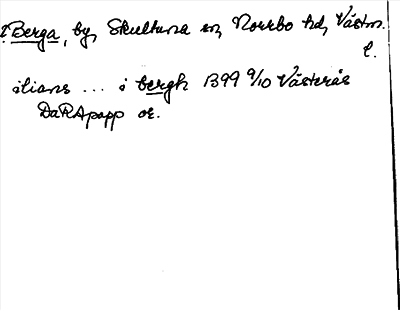 ? Berga, by, Skultuna sn, Norrbo hd, Västm. l.
stians ... i bergh 1399 9/10 Västerås
DaRApapp or.